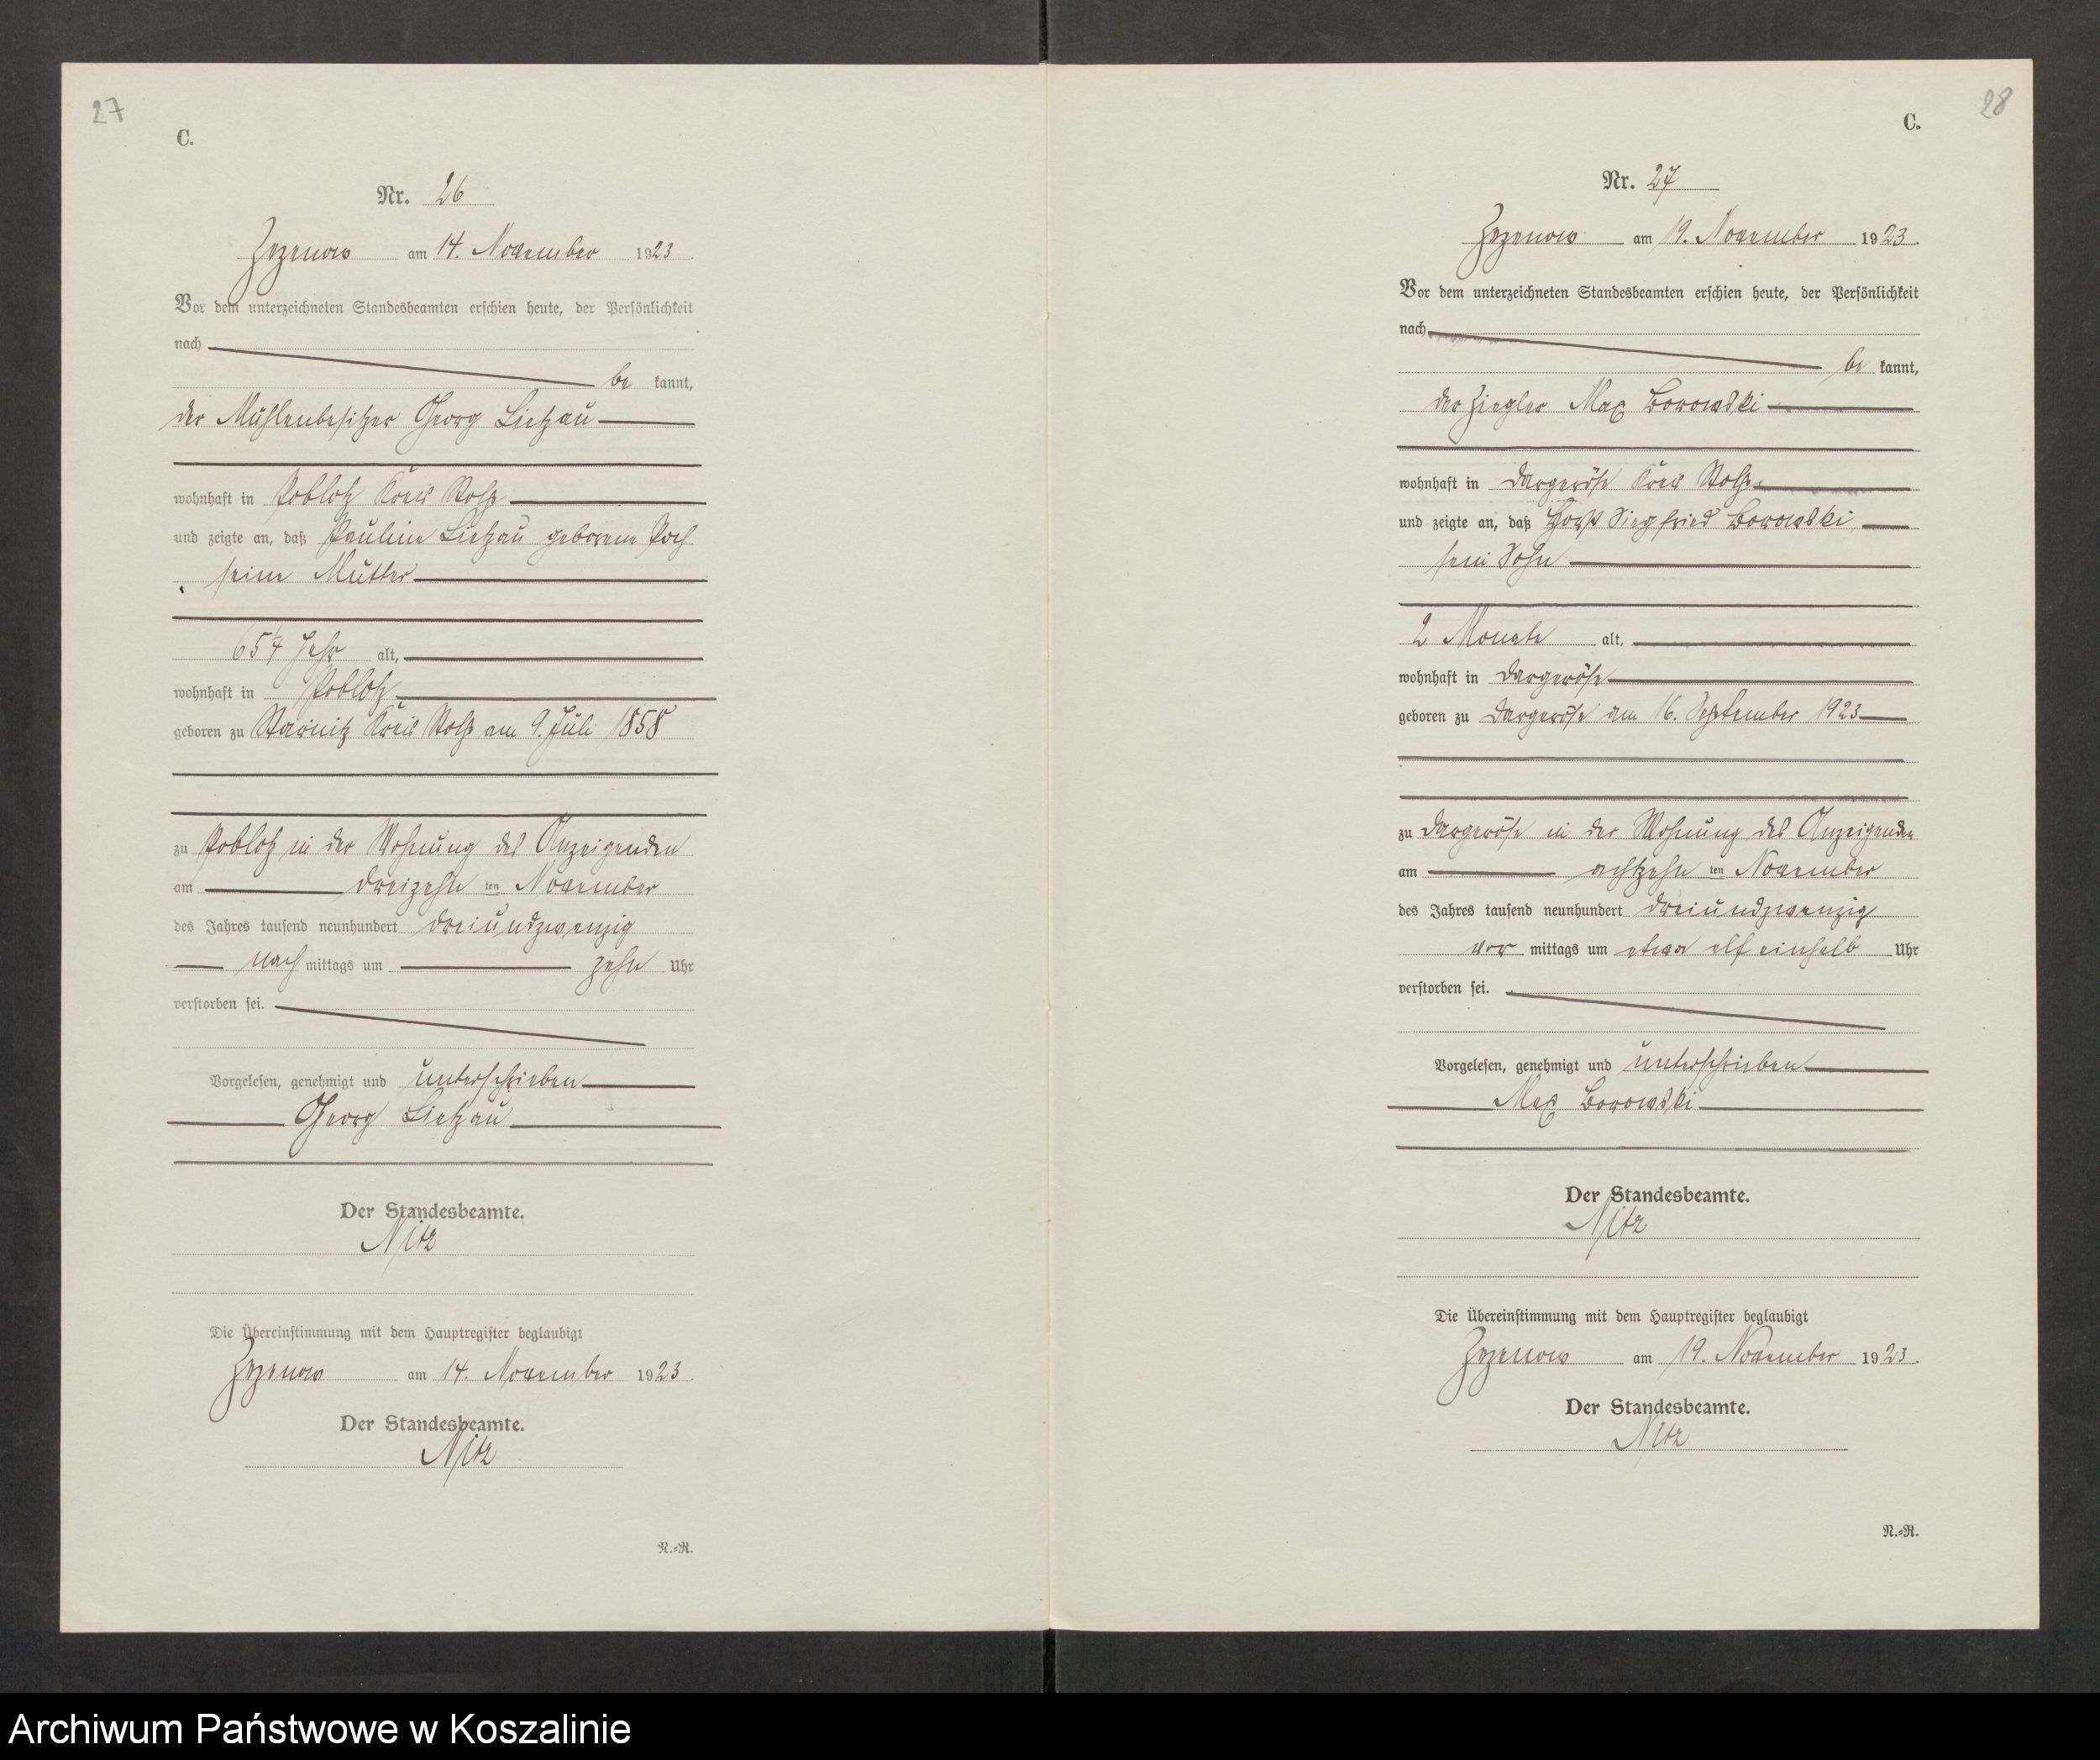 27
C.
Nr. 26
Zezenow am 14. November 1923
Vor dem unterzeichneten Standesbeamten erschien heute, der Persönlichkeit
nach
be kannt,
der Mühlenbesitzer Georg Lietzau
wohnhaft in Poblotz Kreis Stolp
und zeigte an, daß Pauline Lietzau geborene Poch
seine Mutter
65 Jahr alt,
wohnhaft in Poblotz
geboren zu Starnitz Kreis Stolp am 9. Juli 1858
zu Poblotz in der Wohnung des Anzeigenden
am dreizehn ten November
des Jahres tausend neunhundert dreiundzwanzig
nach mittags um zehn Uhr
verstorben sei.
Vorgelesen, genehmigt und unterschrieben
Georg Lietzau
Der Standesbeamte.
Nitz
Die Übereinstimmung mit dem Hauptregister beglaubigt
Zezenow am 14. November 1923
Der Standesbeamte.
Nitz
N.=R.
28
C.
Nr. 27
Zezenow am 19. November 1923.
Vor dem unterzeichneten Standesbeamten erschien heute, der Persönlichkeit
nach
be kannt,
der Ziegler Max Borowski
wohnhaft in Dargeröse Kreis Stolp
und zeigte an, daß Horst Siegfried Borowski
sein Sohn
2 Monate alt,
wohnhaft in Dargeröse
geboren zu Dargeröse am 16. September 1923
zu Dargeröse in der Wohnung des Anzeigenden
am achtzehn ten November
des Jahres tausend neunhundert dreiundzwanzig
vor mittags um etwa elf einhalb Uhr
verstorben sei.
Vorgelesen, genehmigt und unterschrieben
Max Borowski
Der Standesbeamte.
Nitz
Die Übereinstimmung mit dem Hauptregister beglaubigt
Zezenow am 19. November 1923.
Der Standesbeamte.
Nitz
N.=R.
Archiwum Państwowe w Koszalinie